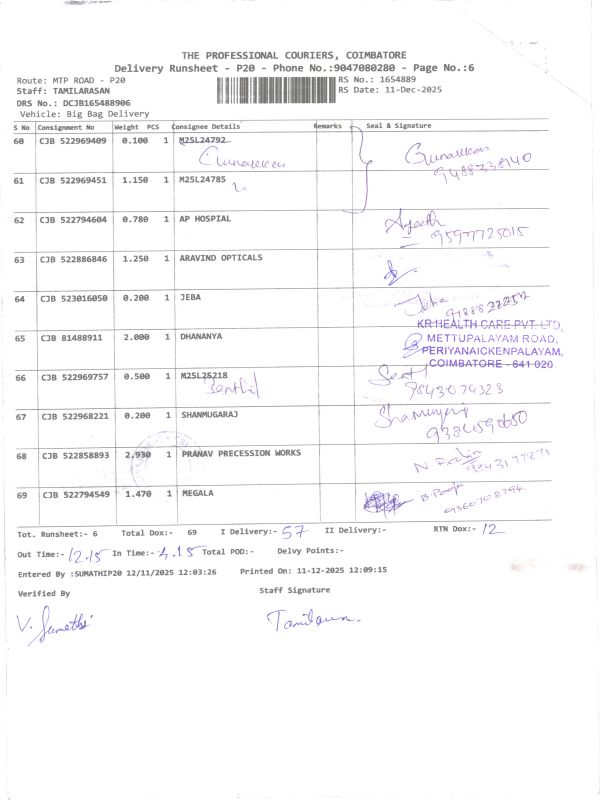 THE PROFESSIONAL COURIERS, COIMBATORE
Delivery Runsheet - P20 - Phone No.:9047080280 - Page No.:6
Route: MTP ROAD - P20 RS No.: 1654889
Staff: TAMILARASAN RS Date: 11-Dec-2025
DRS No.: DCJB165488906
Vehicle: Big Bag Delivery
S No Consignment No Weight PCS Consignee Details Remarks Seal & Signature
60 CJB 522969409 0.100 1 M25L24792
Gunasekar Gunasekar
9488338140
61 CJB 522969451 1.150 1 M25L24785
62 CJB 522794604 0.780 1 AP HOSPIAL Ajeeth
9597725015
63 CJB 522886846 1.250 1 ARAVIND OPTICALS
64 CJB 523016050 0.200 1 JEBA Jeba
KR HEALTH CARE PVT. LTD,
65 CJB 81488911 2.000 1 DHANANYA METTUPALAYAM ROAD,
PERIYANAICKENPALAYAM,
COIMBATORE - 641 020
66 CJB 522969757 0.500 1 M25L25218
Senthil 9843074323
67 CJB 522968221 0.200 1 SHANMUGARAJ Shamugaraj
9384590650
68 CJB 522858893 2.930 1 PRANAV PRECESSION WORKS
69 CJB 522794549 1.470 1 MEGALA B. Pooja
9360708794
Tot. Runsheet:- 6 Total Dox:- 69 I Delivery:- 57 II Delivery:- RTN Dox:- 12
Out Time:- 12.15 In Time:- 4.15 Total POD:- Delvy Points:-
Entered By :SUMATHIP20 12/11/2025 12:03:26 Printed On: 11-12-2025 12:09:15
Verified By Staff Signature
V. Sumathi